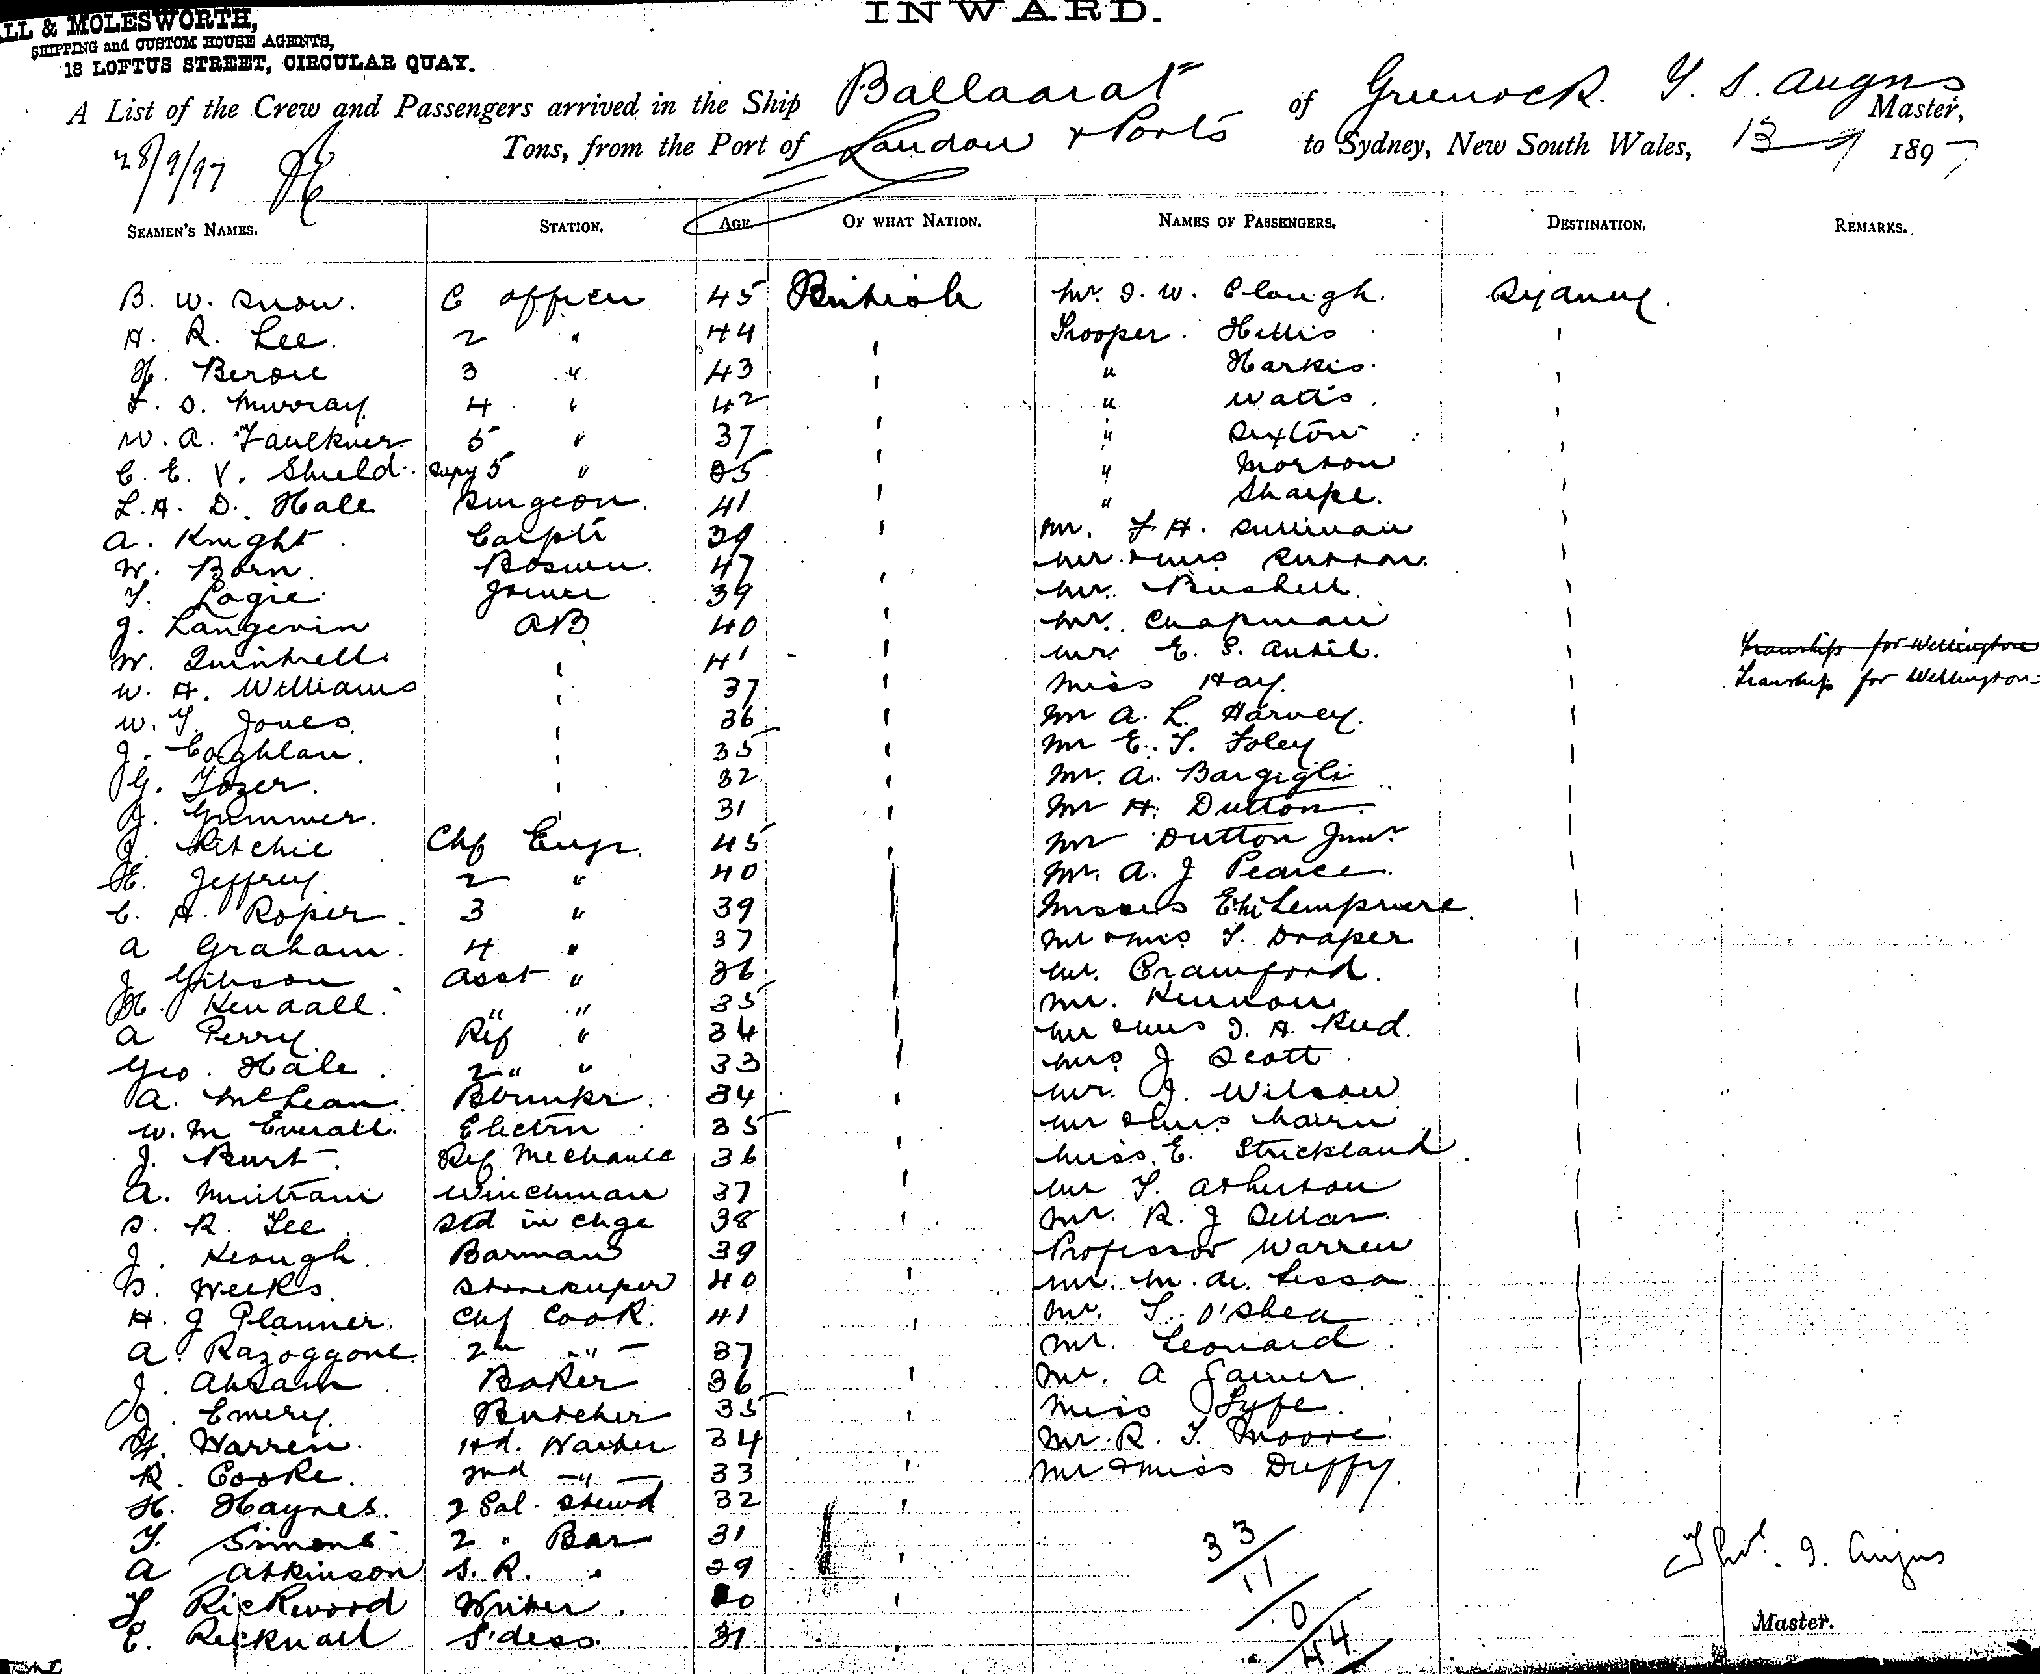 INWARD.
LL & MOLESWORTH,
SHIPPING and CUSTOM HOUSE AGENTS,
18 LOFTUS STREET, CIRCULAR QUAY.
A List of the Crew and Passengers arrived in the Ship Ballaarat of Greenock. T. S. Angus Master,
Tons, from the Port of London & Ports to Sydney, New South Wales, 13 9 1897
28/9/97
SEAMEN'S NAMES. STATION. AGE OF WHAT NATION. NAMES OF PASSENGERS. DESTINATION. REMARKS.
B. W. Snow. C officer 45 British Mr. J. W. Clough. Sydney.
A. R. Lee. 2 " 44 Trooper. Hillis
H. 3 " 43 " Harkis.
F. O. Murray 4 " 42 " Watts.
W. A. Faulkner 5 " 37 " Sexton
C. E. V. Shield. Supy 5 " 35 " Morton
L. A. D. Hale Surgeon. 41 " Sharpe.
A. Knight. Carptr 39 Mr. F. H. Sullivan
W. Born. Boswn. 47 Mr & Mrs Sutton.
T. Logie Joiner 39 Mr. Bushell.
J. Langevin AB 40 Mr. Chapman
W. Quintrell. 41 E. S. Antil. Tranship for Wellington
W. H. Williams 37 Miss Hay. Tranship for Wellington
W. T. Jones. 36 Mr A. L. Harvey.
J. Coghlan. 35 Mr E. T. Foley
G. Tozer. 32 Mr. A. Bargigli
J. Grimmer. 31 Mr H. Dutton
J. Ritchie Chf Engr. 45 Mr Dutton Junr.
H. Jeffrey. 2 " 40 Mr. A. J Pearce.
C. H. Roper. 3 " 39 Misses Lempriere.
A Graham. 4 " 37 Mr & Mrs T. Draper
J Gibson Asst " 36 Mr. Crawford.
H. Kendall. " " 35 Mr.
A Perry. Ref " 34 Mr & Mrs J. H. Reid.
Geo. Hale. 2 " " 33 Mrs J Scott
A. McLean. 34 Mr. J. Wilson
W. M Everall. Electrn 35 Mr & Mrs
J. Burt. Ref Mechanic 36 Miss. E. Strickland.
A. Winchman 37 Mr T. Atherton
S. R. Lee Std in chge 38 Mr. R. J Sellar.
J. Keough. Barman 39 Professor Warren
Weeks. Storekeeper 40 Mr. M. de Lissa
H. J Planner. Chf Cook. 41 Mr. T. O'Shea
A. Razoggone. 2nd " 37 Mr. Leonard.
J. Absam. Baker 36 Mr. A
J. Emery. Butcher 35 Miss Syfe.
H. Warren. Hd. Waiter 34 Mr. R. T. Moore
R. Cooke. 2nd " 33 Mr & Miss Duffy.
H. Haynes. 2 Sal. Stewd 32
T. Simons 2 " Bar 31
A Atkinson S. R. " 29
T Rickwood Writer. 30
E. Recknall S'dess. 31
33
11
0
44
T. S. Angus
Master.